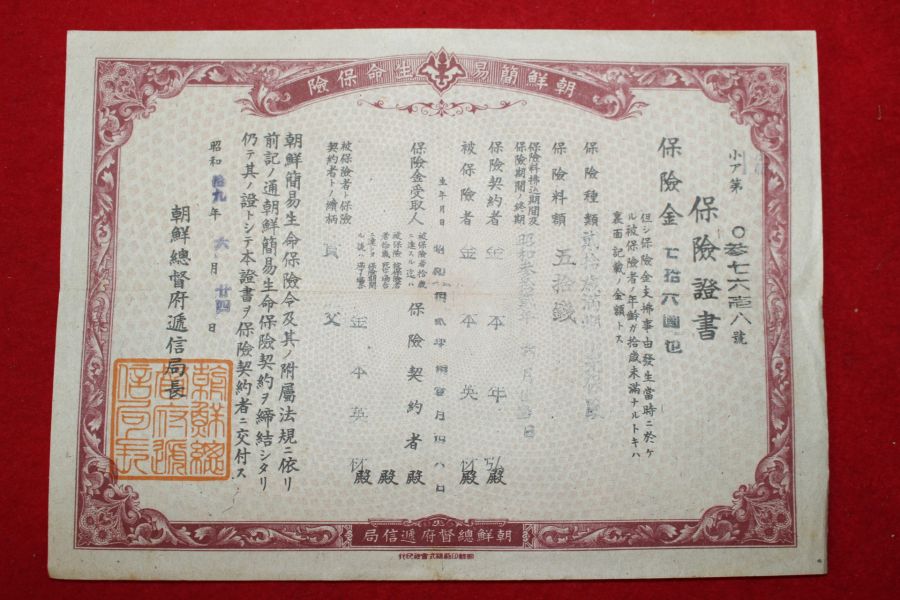 朝鮮簡易生命保險
小ア第
號
保險證書
保險金 七拾六圓也
但シ保險金支拂事由發生當時ニ於ケ
ル被保險者ノ年齡ガ拾歲未滿ナルトキハ
裏面記載ノ金額トス
保險種類
保險料額 五拾錢
保險料拂込期間及
保險期間ノ終期
保險契約者 金本年弘殿
被保險者 金本英材殿
生年月日
保險金受取人
被保險者拾歲
ニ達スル迄ハ
保險契約者殿
殿
金本英材殿
被保險者ト保險
契約者トノ續柄
父
朝鮮簡易生命保險令及其ノ附屬法規ニ依リ
前記ノ通朝鮮簡易生命保險契約ヲ締結シタリ
仍テ其ノ證トシテ本證書ヲ保險契約者ニ交付ス
昭和拾九年六月廿四日
朝鮮總督府遞信局長
朝鮮總督府遞信局